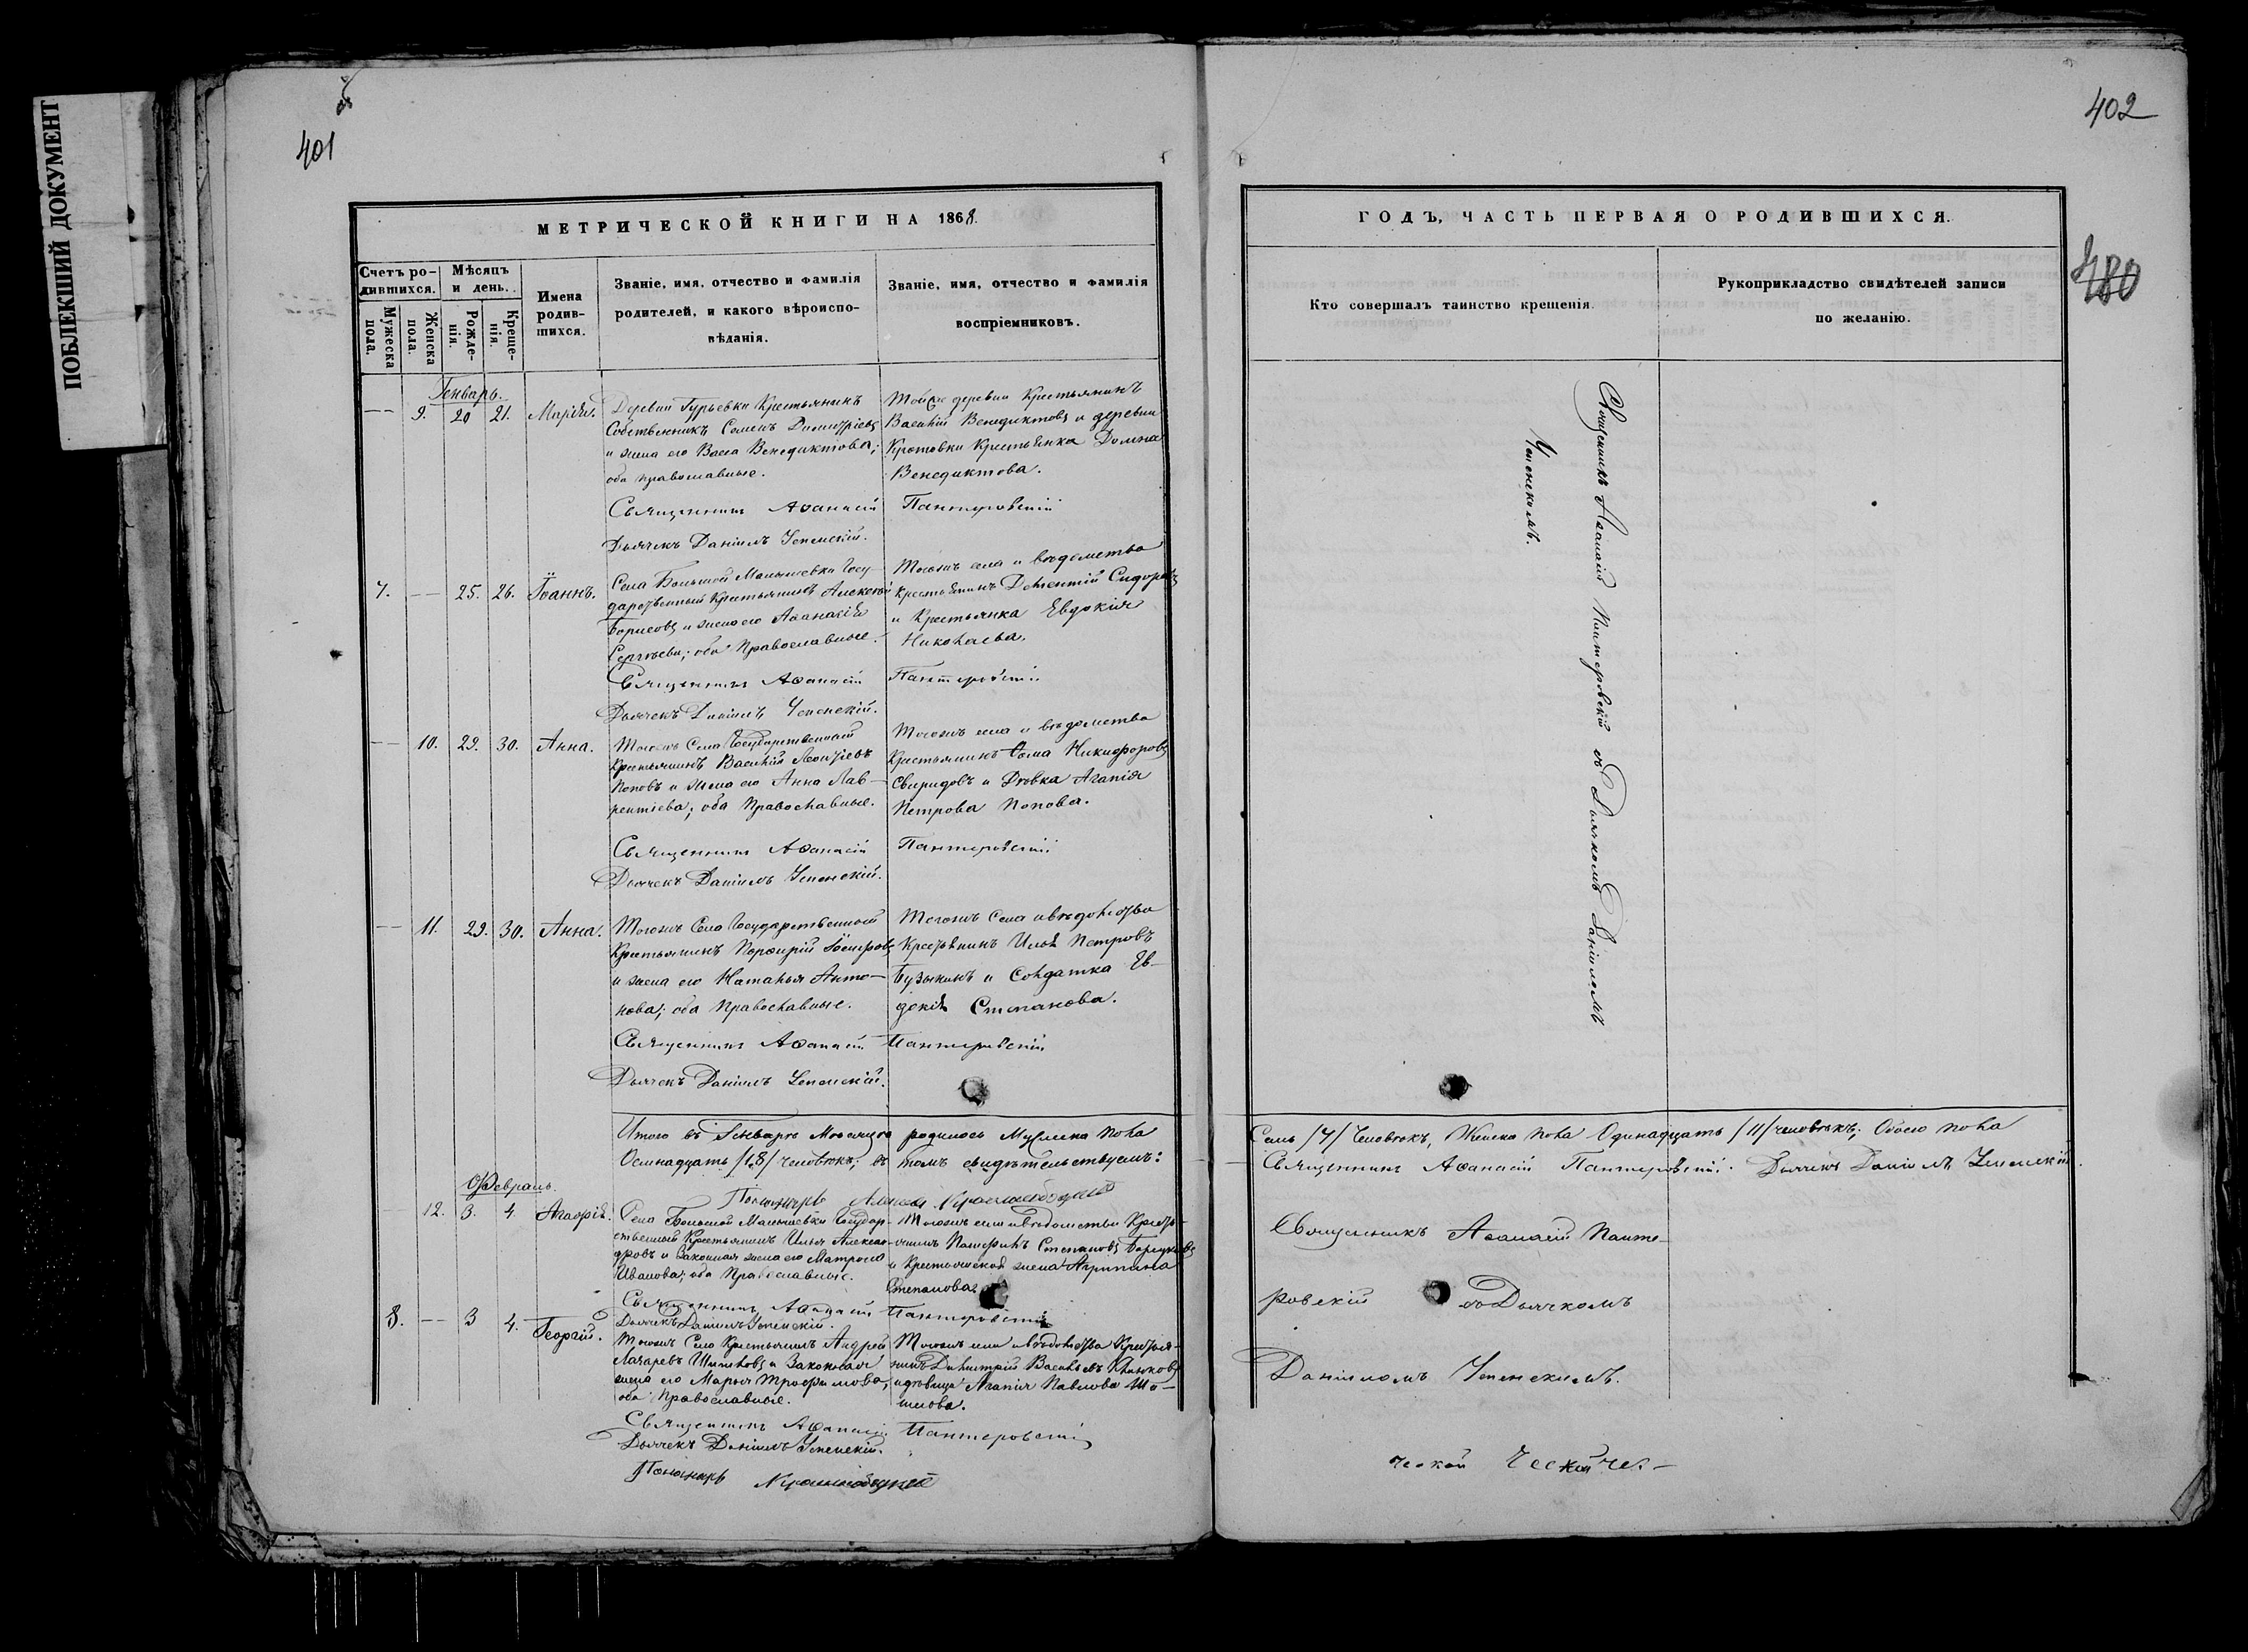 ПОБЛЕКШИЙ ДОКУМЕНТ
об
401
МЕТРИЧЕСКОЙ КНИГИ НА 1868.
Счетъ ро-
дившихся.
Мужеска
пола.
Женска
пола.
Мѣсяцъ
и день.
Рожде-
нія.
Креще-
нія.
Имена
родив-
шихся.
Званіе, имя, отчество и фамилія
родителей, и какого вѣроиспо-
вѣданія.
Званіе, имя, отчество и фамилія
воспріемниковъ.
Генварь.
— 9. 20 21. Марія.
Деревни Гурьевки Крестьянинъ
Собственникъ Семенъ Димитріевъ
и жена его Васса Венедиктова;
оба православные.
Тойже деревни Крестьянинъ
Василій Венедиктовъ и деревни
Кротовки Крестьянка Домна
Венедиктова.
Священникъ Аѳанасій Пантеровскій
Дьячекъ Даніилъ Успенскій.
7. — 25. 26. Іоаннъ.
Села Большой Малышевки Госу-
дарственный Крестьянинъ Алексѣй
Борисовъ и жена его Аѳанасія
Сергѣева; оба Православные.
Тогожъ села и вѣдомства
Крестьянинъ Дементій Сидоровъ
и Крестьянка Евдокія
Николаева.
Священникъ Аѳанасій Пантеровскій
Дьячекъ Даніилъ Успенскій.
— 10. 29. 30. Анна.
Тогожъ Села Государственный
Крестьянинъ Василій Леонтіевъ
Поповъ и жена его Анна Лав-
рентіева; оба Православные.
Тогожъ села и вѣдомства
Крестьянинъ Ѳома Никифоровъ
Свиридовъ и Дѣвка Агапія
Петрова Попова.
Священникъ Аѳанасій Пантеровскій
Дьячекъ Даніилъ Успенскій.
— 11. 29. 30. Анна.
Тогожъ Села Государственный
Крестьянинъ Порфирій Іосифовъ
и жена его Наталья Анто-
нова; оба Православные.
Тогожъ Села и вѣдомства
Крестьянинъ Илья Петровъ
Бузыкинъ и Солдатка Ев-
докія Степанова.
Священникъ Аѳанасій Пантеровскій
Дьячекъ Даніилъ Успенскій.
Итого въ Генварѣ Мѣсяцѣ родилось Мужска пола
Осмнадцать /18/ человѣкъ; въ томъ свидѣтельствуемъ:
Пономарь
Февраль.
12. 3. 4. Агафія.
Села Большой Малышевки Государ-
ственный Крестьянинъ Илья Алексан-
дровъ и Законная жена его Матрона
Иванова; оба Православные.
Тогожъ села и вѣдомства Кресть-
янинъ Степановъ
и Крестьянская жена Агрипина
Степанова.
Священникъ Аѳанасій Пантеровскій
Дьячекъ Даніилъ Успенскій.
8. — 3 4. Георгій.
Тогожъ Села Крестьянинъ Андрей
Лазаревъ и Законная
жена его Марья Трофимова;
оба Православные.
Тогожъ села и вѣдомства Крестья-
нинъ Димитрій Васильевъ
и дѣвица Агапія Павлова
Священникъ Аѳанасій Пантеровскій
Дьячекъ Даніилъ Успенскій.
Пономарь
402
480
ГОДЪ, ЧАСТЬ ПЕРВАЯ О РОДИВШИХСЯ.
Кто совершалъ таинство крещенія.
Рукоприкладство свидѣтелей записи
по желанію.
Священникъ Аѳанасій Пантеровскій съ Дьячкомъ Даніиломъ
Успенскимъ.
Семь /7/ Человѣкъ, Женска пола Одинадцать /11/ человѣкъ; Обоего пола
Священникъ Аѳанасій Пантеровскій. Дьячекъ Даніилъ Успенскій.
Священникъ Аѳанасій Панте-
ровскій со Дьячкомъ
Даніиломъ Успенскимъ.
ческой